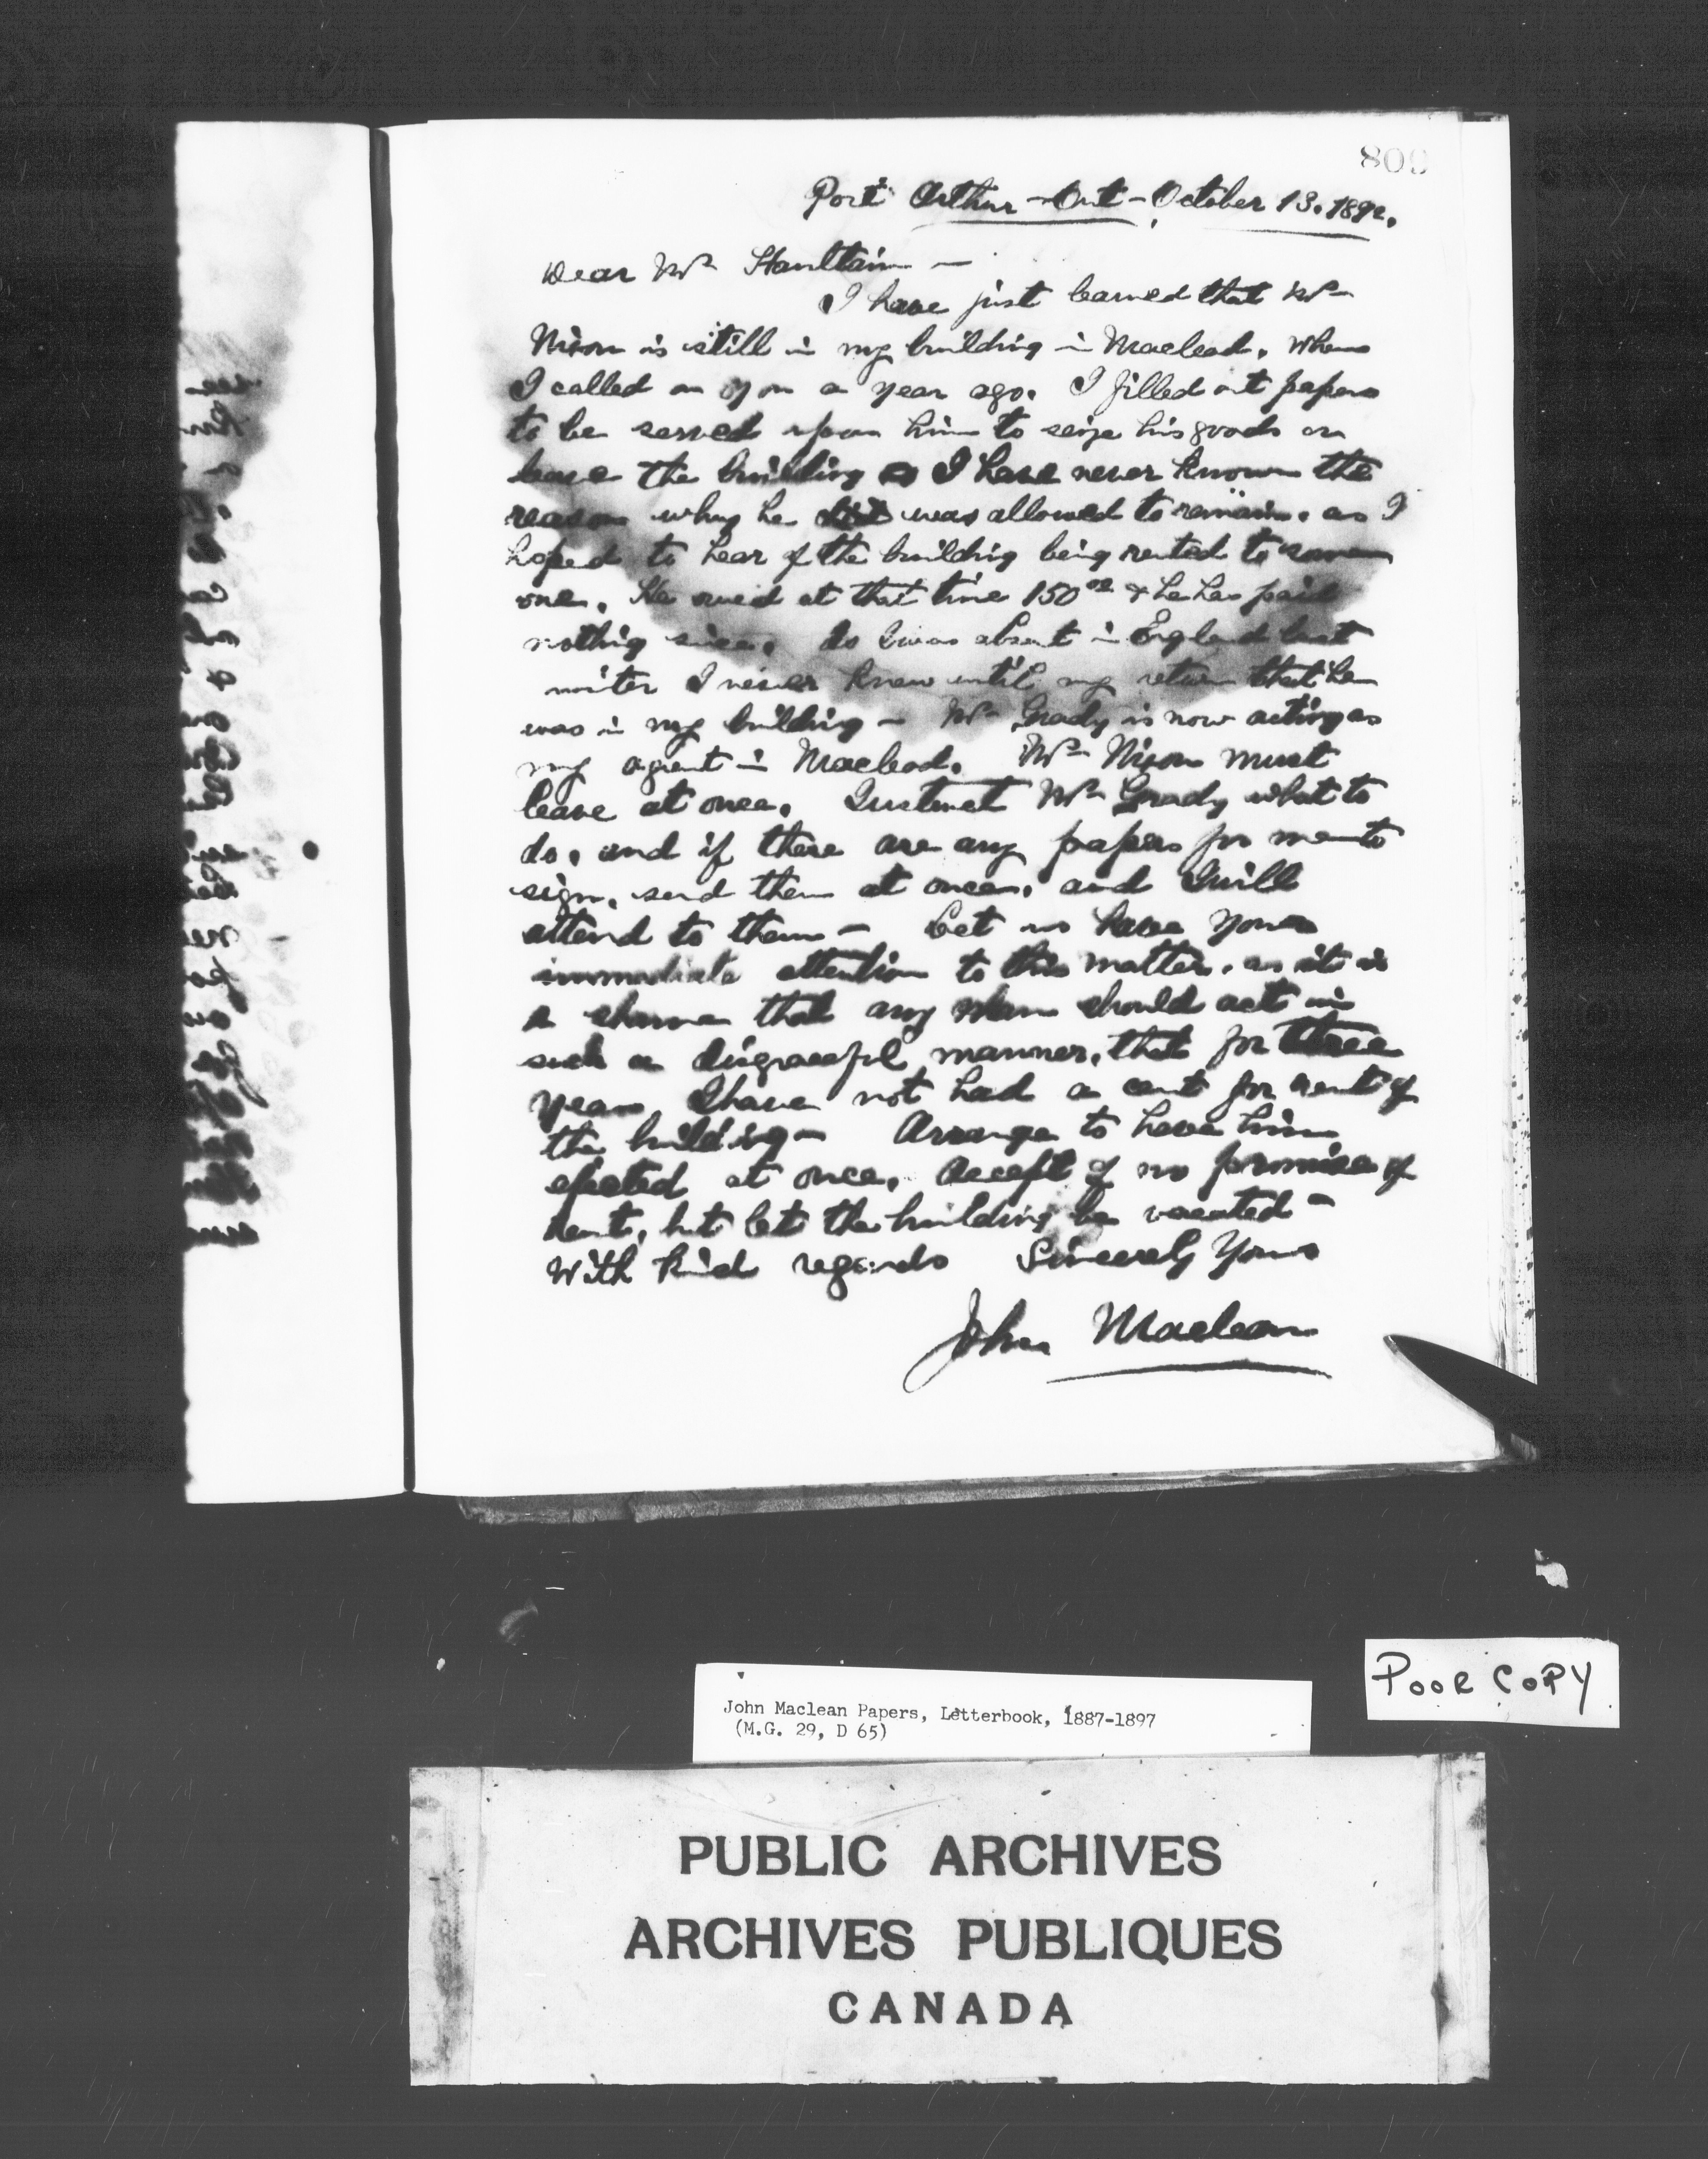 809
Port Arthur - Ont - October 13. 1892.
Dear Mr Haultain -
I have just learned that Mr
Nixon is still in my building in Macleod. When
I called on you a year ago. I filled out papers
to be served upon him to seize his goods or
leave the building I have never known the
reason why he did was allowed to remain. as I
hoped to hear of the building being rented to some
one. He owed at that time 150 00 & he has paid
nothing since. As I was absent in England last
winter I never knew until my return that he
was in my building - Mr Grady is now acting as
my agent in Macleod. Mr Nixon must
leave at once. Instruct Mr Grady what to
do, and if there are any papers for me to
sign, send them at once, and I will
attend to them - Let us have your
immediate attention to this matter, as it is
a shame that any man should act in
such a disgraceful manner, that for three
years I have not had a cent for rent of
the building - Arrange to have him
ejected at once. Accept of no promise of
rent, but let the building be vacated -
With kind regards Sincerely Yours
John Maclean
POOR COPY
John Maclean Papers, Letterbook, 1887-1897
(M.G. 29, D 65)
PUBLIC ARCHIVES
ARCHIVES PUBLIQUES
CANADA